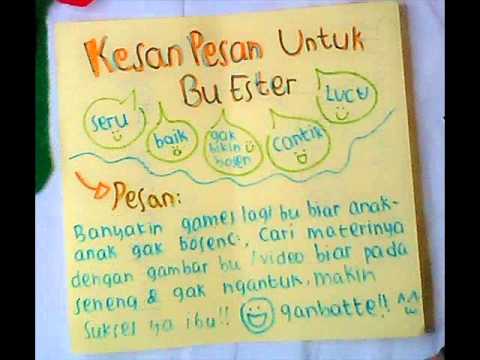 Kesan Pesan Untuk
Bu Ester
seru
baik
gak bikin bosen
cantik
Lucu
Pesan:
Banyakin games lagi bu biar anak-
anak gak bosenc:, cari materinya
dengan gambar bu / video biar pada
seneng & gak ngantuk, makin
sukses ya ibu!! ganbatte!! ^w^